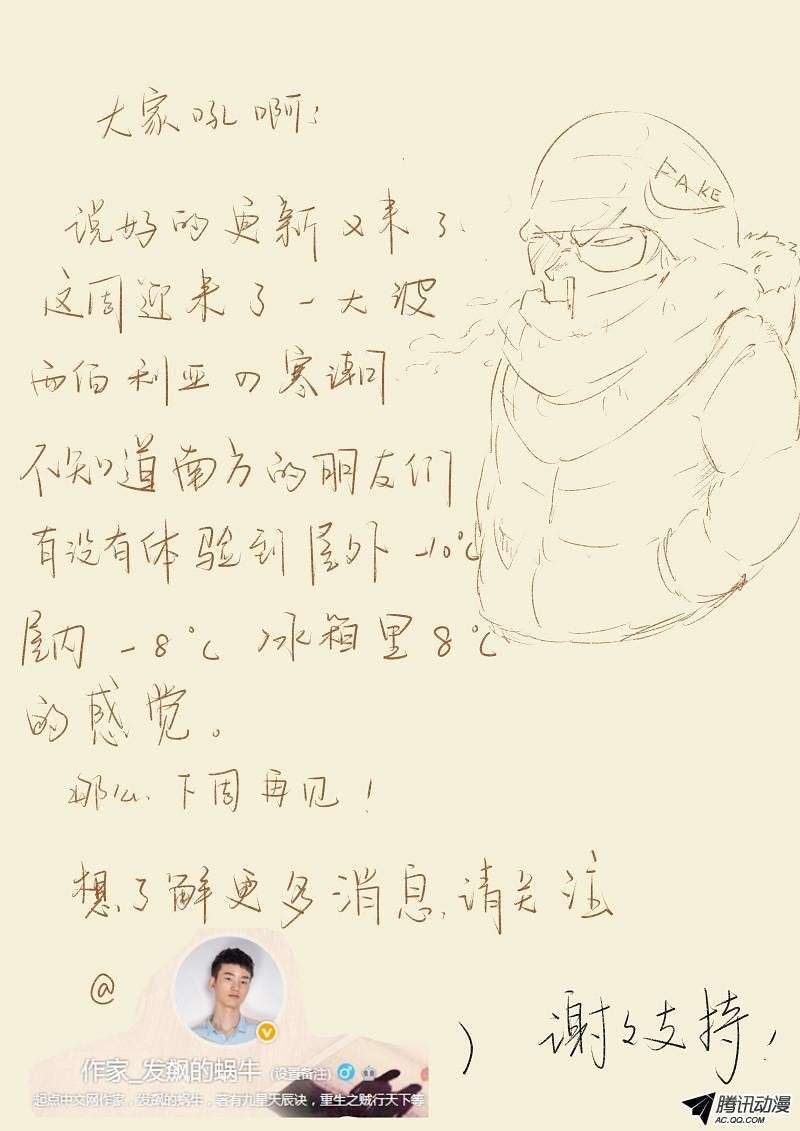 大家吼啊！
FAKE
说好的更新又来了
这周迎来了一大波
西伯利亚の寒潮
不知道南方的朋友们
有没有体验到屋外 -10℃
屋内 -8℃ 冰箱里8℃
的感觉。
那么、下周再见！
想了解更多消息、请关注
@
作家_发飙的蜗牛 (设置备注)
起点中文网作家，发飙的蜗牛，著有九星天辰诀，重生之贼行天下等
谢々支持！
腾讯动漫
AC.QQ.COM